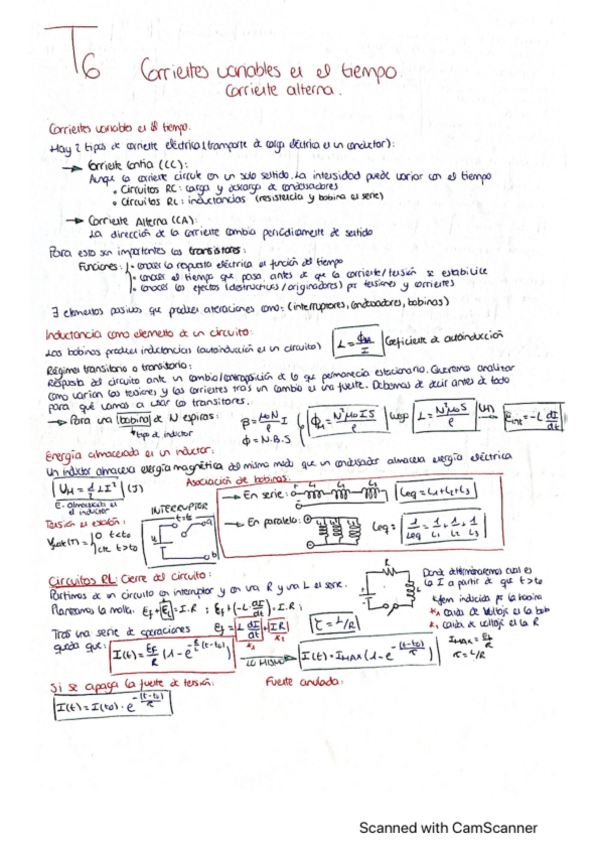 T6 Corrientes variables en el tiempo.
Corriente alterna.
Corrientes variables en el tiempo.
Hay 2 tipos de corriente eléctrica (transporte de carga eléctrica en un conductor):
→ Corriente Contia (CC):
Aunque la corriente circule en un solo sentido. La intensidad puede variar con el tiempo
• Circuitos RC: carga y descarga de condensadores
• Circuitos RL: inductancias (resistencia y bobina en serie)
→ Corriente Alterna (CA):
La dirección de la corriente cambia periódicamente de sentido
Para esto son importantes los transitores:
Funciones: • conocer la respuesta eléctrica en función del tiempo
• conocer el tiempo que pasa antes de que la corriente/tensión se estabilice
• conocer los efectos (destructivos/originadores) por tensiones y corrientes
∃ elementos pasivos que producen alteraciones como: (interruptores, condensadores, bobinas)
Inductancia como elemento de un circuito:
Las bobinas producen inductancias (autoinducción en un circuito) L = Φm/I Coeficiente de autoinducción
Régimen transitorio o transitorio:
Respuesta del circuito ante un cambio/ de lo que permanecía estacionario. Queremos analizar
como varían las tensiones y las corrientes tras un cambio en una fuente. Debemos de decir antes de todo
para qué vamos a usar los transitores.
→ Para una bobina de N espiras: B = μ₀N/ℓ I Φ = N²μ₀IS/ℓ luego L = N²μ₀S/ℓ = -L dI/dt
*tipo de inductor Φ = N·B·S
Energía almacenada en un inductor:
Un inductor almacena energía magnética del mismo modo que un condensador almacena energía eléctrica
Um = 1/2 LI² (J)
E. almacenada en el inductor
Asociación de bobinas:
→ En serie: L₁ L₂ L₃ Leq = L₁+L₂+L₃
→ En paralelo: L₁ L₂ L₃ Leq: 1/Leq = 1/L₁ + 1/L₂ + 1/L₃
Tensión en escalón:
0 t<t₀
cte t>t₀
INTERRUPTOR
t=t₀
a
b
Circuitos RL: Cierre del circuito:
Partimos de un circuito con interruptor y con una R y una L en serie.
Planteamos la malla: Ef + EL = I·R ; Ef + (-L·dI/dt) = I·R ;
Tras una serie de operaciones Ef = L dI/dt + IR τ = L/R
queda que: I(t) = Ef/R (1-e^(-R/L (t-t₀))) LO MISMO → I(t) = IMAX (1-e^(-(t-t₀)/τ))
R
L
Donde determinaremos cual es
la I a partir de que t>t₀
fem inducida por la bobina
*₂ caída de voltaje en la bob
*₁ caída de voltaje en la R
IMAX = Ef/R
τ = L/R
Si se apaga la fuente de tensión: Fuente anulada:
I(t) = I(t₀)·e^(-(t-t₀)/τ)
Scanned with CamScanner